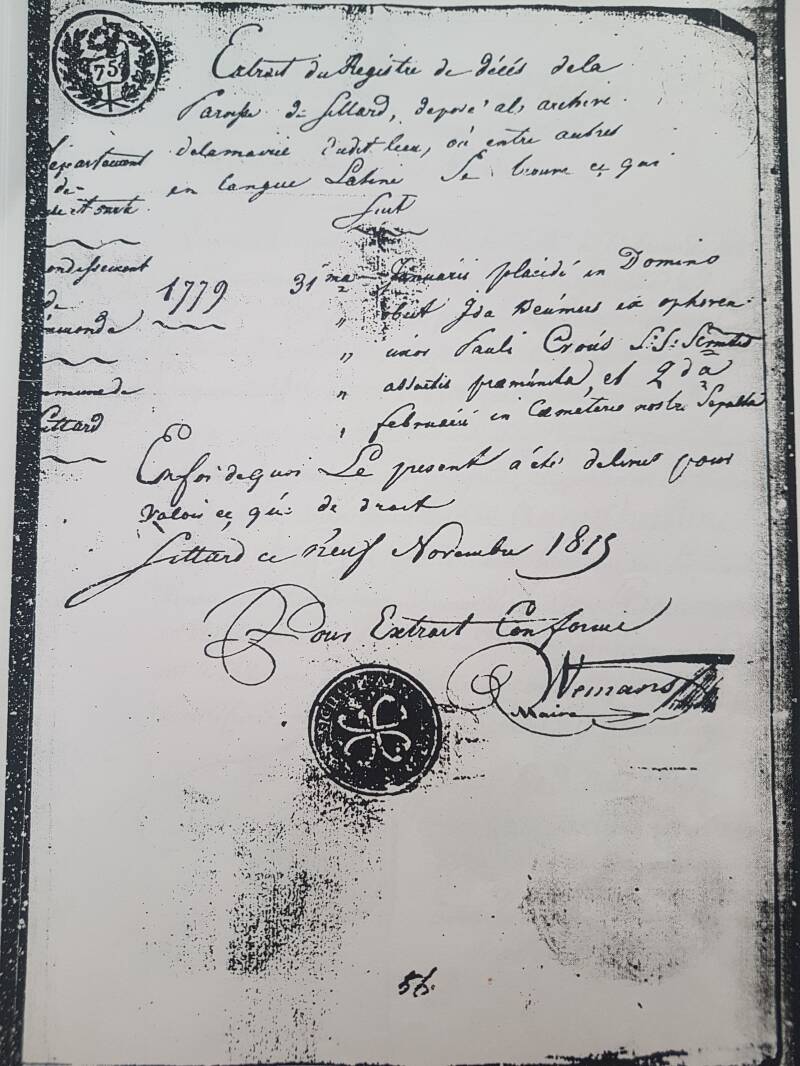 75
Extrait du Registre de décés de la
Paroisse de Sittard, deposé als archive
delamairie dudit lieu, où entre autres
en langue Latine Se trouve ce qui
Suit
epartement
de
ondissement
de
mmune de
Sittard
1779 31ma Januarii placidé in Domino
" obiit Ida
" uxor Pauli Croüs S: S:
" præmunita, et 2da
, februarii in Cœmeterio nostr: Sepulta
Enfoi de quoi Le present a été delivré pour
Valoir ce, qu: de droit
Sittard ce Neuf Novembre 1813
Pour Extrait Conforme
Maire
56.